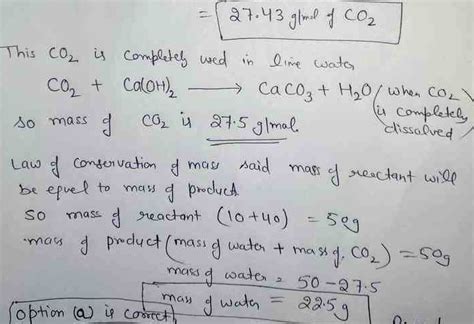 = 27.43 g/mol of CO₂
This CO₂ is completely used in lime water
CO₂ + Ca(OH)₂ → CaCO₃ + H₂O (when CO₂
is completely
dissolved)
so mass of CO₂ is 27.5 g/mol
Law of conservation of mass said mass of reactant will
be equel to mass of product
So mass of reactant (10+40) = 50g
mass of product (mass of water + mass of CO₂) = 50g
mass of water = 50 - 27.5
mass of water = 22.5g
option (a) is correct